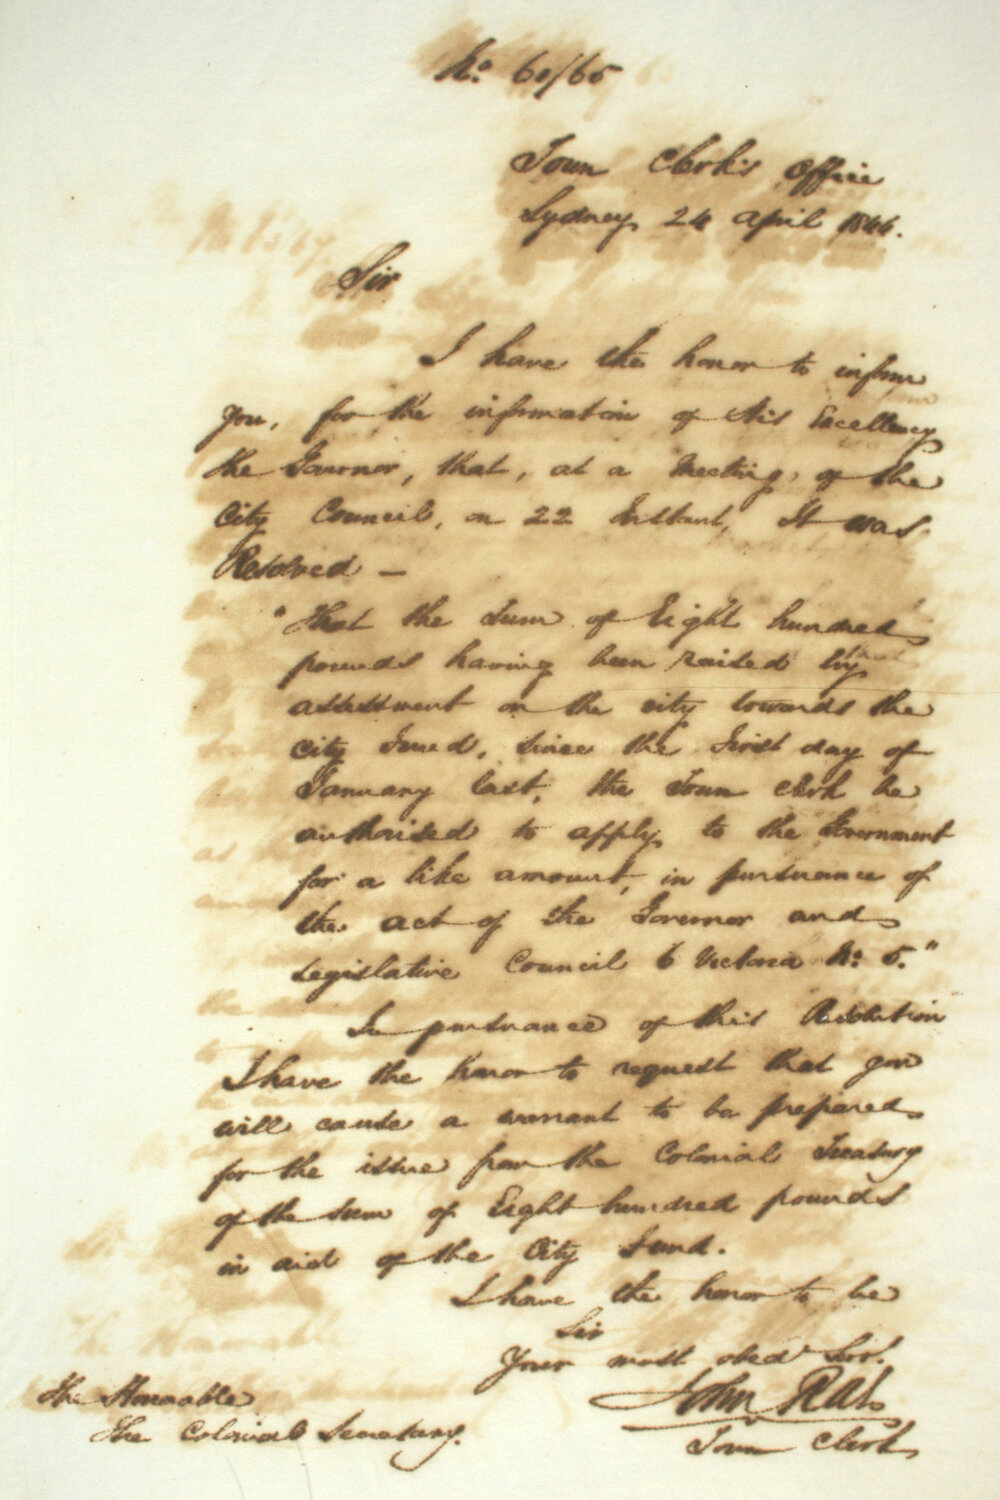 No. 60/65
Town Clerk's Office
Sydney 24 April 1844.
Sir
I have the honor to inform
you, for the information of His Excellency
the Governor, that, at a meeting of the
City Council, on 22 Instant, It was
Resolved —
"That the Sum of Eight hundred
pounds having been raised by
assessment on the city towards the
City Fund, since the First day of
January last, the Town Clerk be
authorised to apply to the Government
for a like amount, in pursuance of
the act of the Governor and
Legislative Council 6 Victoria No. 5."
In pursuance of this Resolution
I have the honor to request that you
will cause a warrant to be prepared
for the issue from the Colonial Treasury
of the Sum of Eight hundred pounds
in aid of the City Fund.
I have the honor to be
Sir
Your most obedt Servt.
John Rae
Town Clerk
The Honorable
The Colonial Secretary.